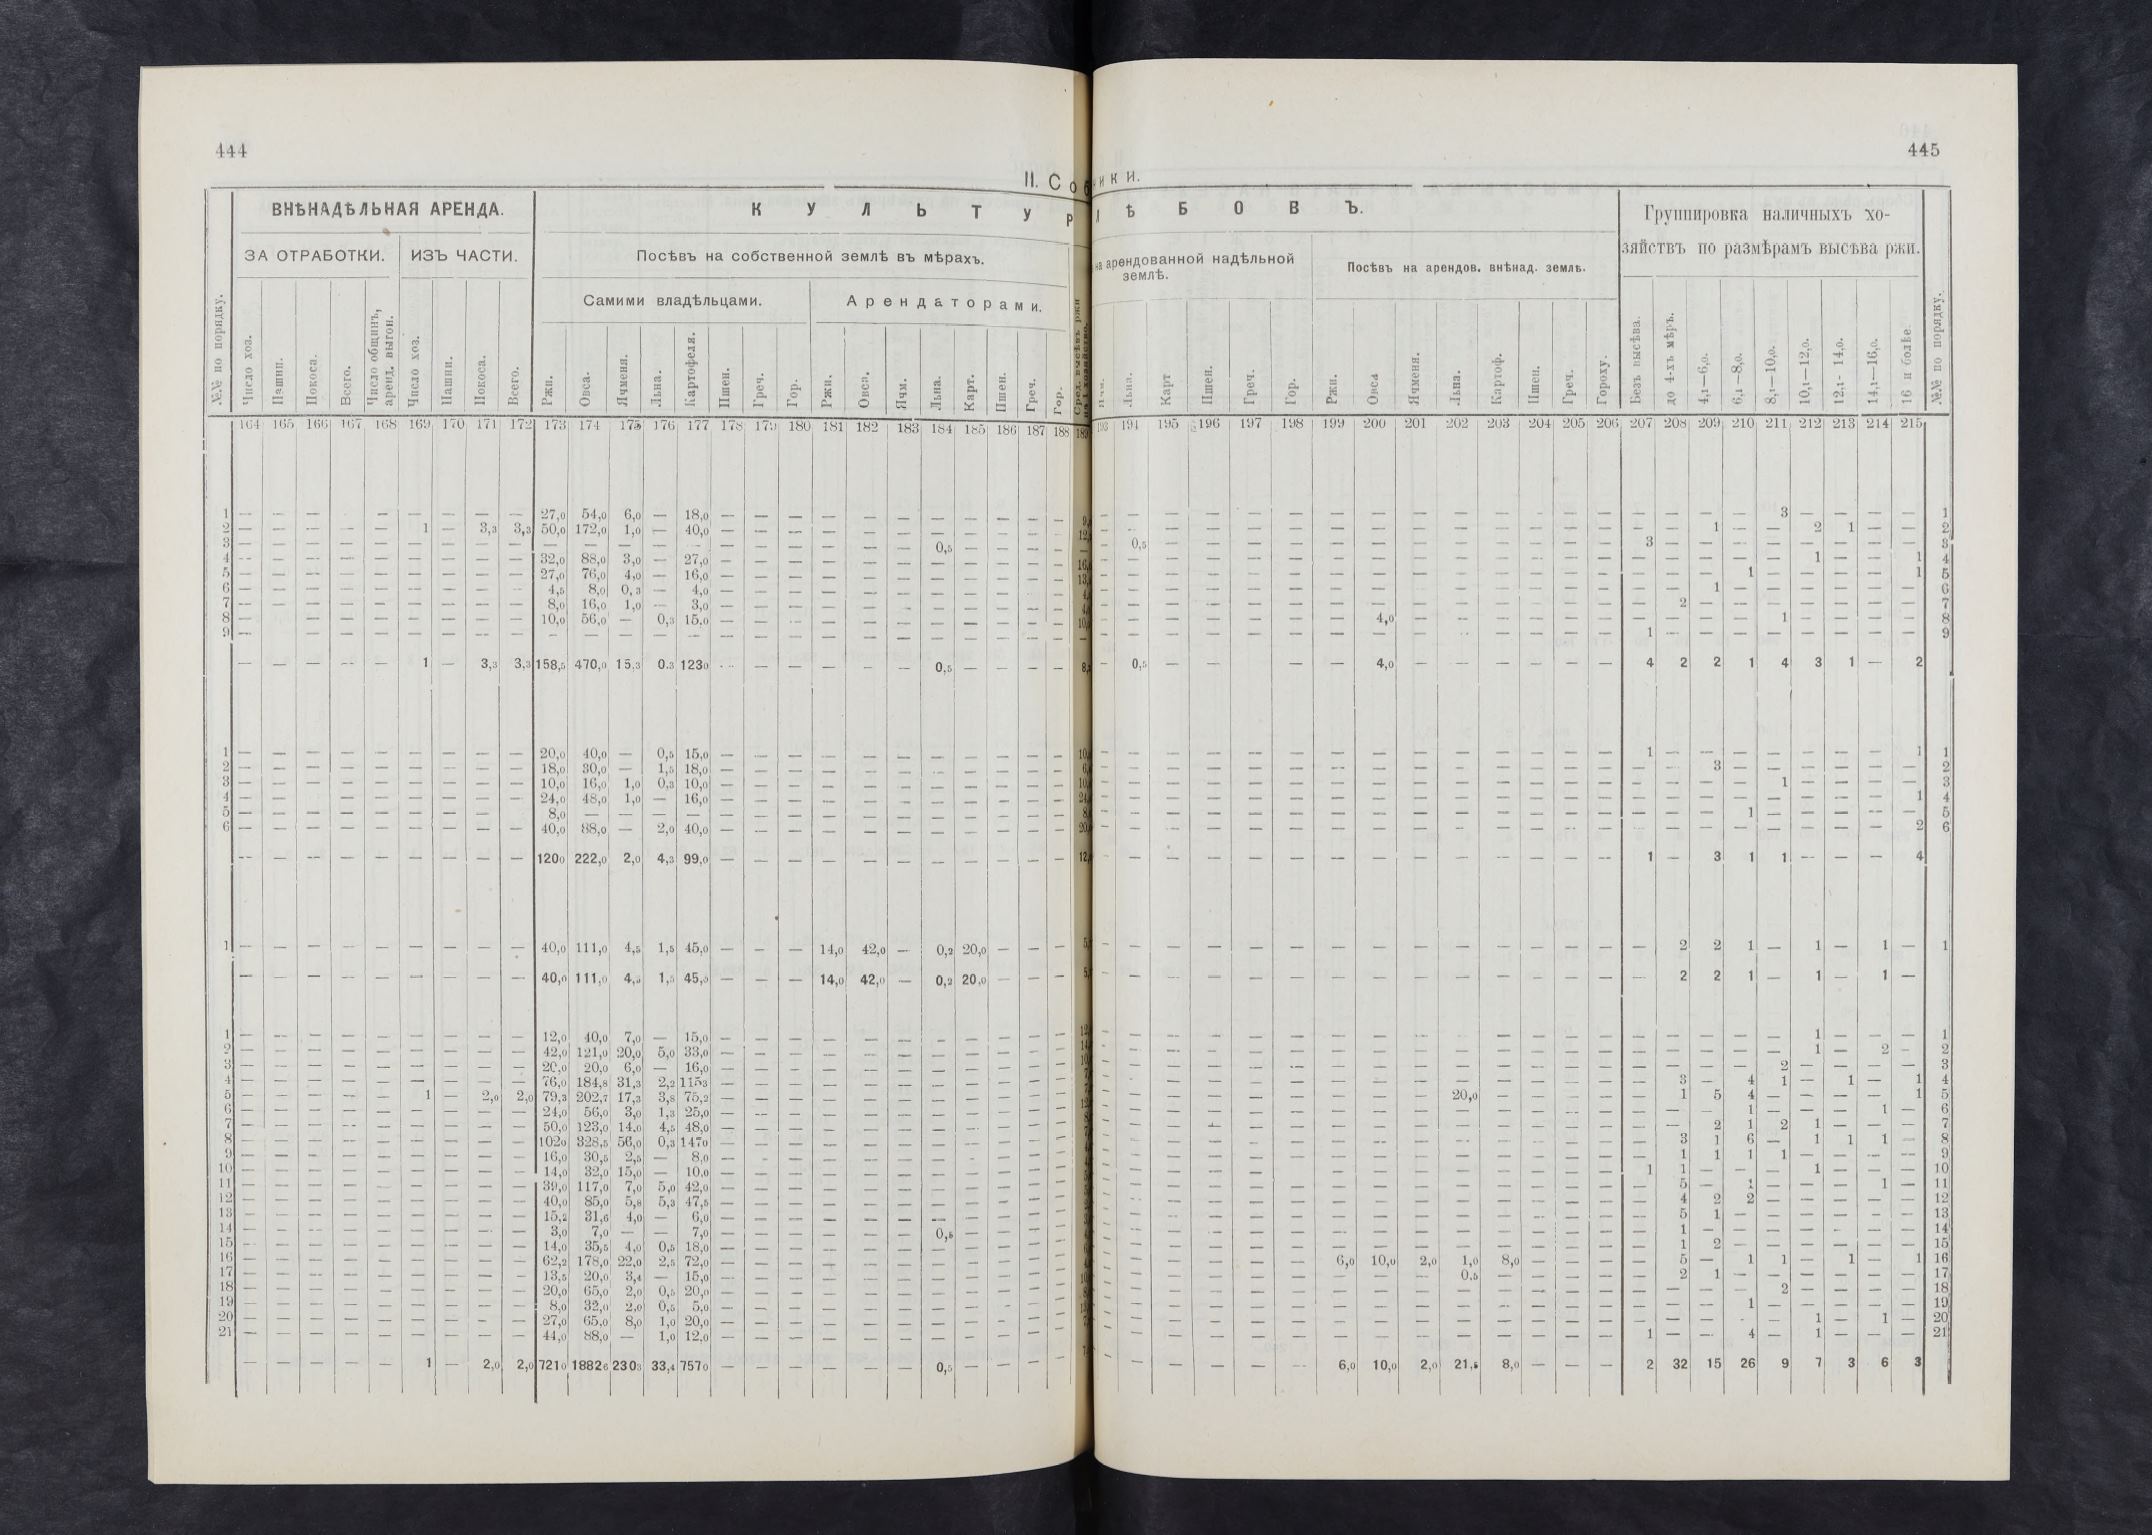 444
445
II. Соб
ники.
ВНѢНАДѢЛЬНАЯ АРЕНДА.
К У Л Ь Т У Р
Ѣ Б О В Ъ.
Группировка наличныхъ хо-
зяйствъ по размѣрамъ высѣва ржи.
ЗА ОТРАБОТКИ. ИЗЪ ЧАСТИ.
Посѣвъ на собственной землѣ въ мѣрахъ.
на арендованной надѣльной
землѣ.
Посѣвъ на арендов. внѣнад. землѣ.
Самими владѣльцами. Арендаторами.
№№ по порядку. Число хоз. Пашни. Покоса. Всего. Число общинъ, аренд. выгон. Число хоз. Пашни. Покоса. Всего. Ржи. Овса. Ячменя. Льна. Картофеля. Пшен. Греч. Гор. Ржи. Овса. Ячм. Льна. Карт. Пшен. Греч. Гор. Сред. высѣвъ ржи на 1 хозяйство.
Ячм. Льна. Карт Пшен. Греч. Гор. Ржи. Овса Ячменя. Льна. Картоф. Пшен. Греч. Гороху. Безъ высѣва. до 4-хъ мѣръ. 4,1—6,0. 6,1—8,0. 8,1—10,0. 10,1—12,0. 12,1- 14,0. 14,1—16,0. 16 и болѣе. №№ по порядку.
164 165 166 167 168 169 170 171 172 173 174 175 176 177 178 179 180 181 182 183 184 185 186 187 188 189
193 194 195 196 197 198 199 200 201 202 203 204 205 206 207 208 209 210 211 212 213 214 215
1 — — — — — — — — — 27,0 54,0 6,0 — 18,0 — — — — — — — — — — —
— — — — — — — — — — — — — — — — — — 3 — — — — 1
2 — — — — — 1 — 3,3 3,3 50,0 172,0 1,0 — 40,0 — — — — — — — — — — —
— — — — — — — — — — — — — — — — 1 — — 2 1 — — 2
3 — — — — — — — — — — — — — — — — — — — — 0,5 — — — — —
— 0,5 — — — — — — — — — — — — 3 — — — — — — — — 3
4 — — — — — — — — — 32,0 88,0 3,0 — 27,0 — — — — — — — — — — —
— — — — — — — — — — — — — — — — — — — 1 — — 1 4
5 — — — — — — — — — 27,0 76,0 4,0 — 16,0 — — — — — — — — — — —
— — — — — — — — — — — — — — — — — 1 — — — — 1 5
6 — — — — — — — — — 4,5 8,0 0,3 — 4,0 — — — — — — — — — — —
— — — — — — — — — — — — — — — — 1 — — — — — — 6
7 — — — — — — — — — 8,0 16,0 1,0 — 3,0 — — — — — — — — — — —
— — — — — — — — — — — — — — — 2 — — — — — — — 7
8 — — — — — — — — — 10,0 56,0 — 0,3 15,0 — — — — — — — — — — —
— — — — — — — 4,0 — — — — — — — — — — 1 — — — — 8
9 — — — — — — — — — — — — — — — — — — — — — — — — — —
— — — — — — — — — — — — — — 1 — — — — — — — — 9
— — — — — 1 — 3,3 3,3 158,5 470,0 15,3 0.3 1230 — — — — — — 0,5 — — — —
— 0,5 — — — — — 4,0 — — — — — — 4 2 2 1 4 3 1 — 2
1 — — — — — — — — — 20,0 40,0 — 0,5 15,0 — — — — — — — — — — —
— — — — — — — — — — — — — — 1 — — — — — — — 1 1
2 — — — — — — — — — 18,0 30,0 — 1,5 18,0 — — — — — — — — — — —
— — — — — — — — — — — — — — — — 3 — — — — — — 2
3 — — — — — — — — — 10,0 16,0 1,0 0,3 10,0 — — — — — — — — — — —
— — — — — — — — — — — — — — — — — — 1 — — — — 3
4 — — — — — — — — — 24,0 48,0 1,0 — 16,0 — — — — — — — — — — —
— — — — — — — — — — — — — — — — — — — — — — 1 4
5 — — — — — — — — — 8,0 — — — — — — — — — — — — — — —
— — — — — — — — — — — — — — — — — 1 — — — — — 5
6 — — — — — — — — — 40,0 88,0 — 2,0 40,0 — — — — — — — — — — —
— — — — — — — — — — — — — — — — — — — — — — 2 6
— — — — — — — — — 1200 222,0 2,0 4,3 99,0 — — — — — — — — — — —
— — — — — — — — — — — — — — 1 — 3 1 1 — — — 4
1 — — — — — — — — — 40,0 111,0 4,5 1,5 45,0 — — — 14,0 42,0 — 0,2 20,0 — — —
— — — — — — — — — — — — — — — 2 2 1 — 1 — 1 — 1
— — — — — — — — — 40,0 111,0 4,5 1,5 45,0 — — — 14,0 42,0 — 0,2 20,0 — — —
— — — — — — — — — — — — — — — 2 2 1 — 1 — 1 —
1 — — — — — — — — — 12,0 40,0 7,0 — 15,0 — — — — — — — — — — —
— — — — — — — — — — — — — — — — — — — 1 — — — 1
2 — — — — — — — — — 42,0 121,0 20,0 5,0 33,0 — — — — — — — — — — —
— — — — — — — — — — — — — — — — — — — 1 — 2 — 2
3 — — — — — — — — — 20,0 20,0 6,0 — 16,0 — — — — — — — — — — —
— — — — — — — — — — — — — — — — — — 2 — — — — 3
4 — — — — — — — — — 76,0 184,8 31,3 2,2 1153 — — — — — — — — — — —
— — — — — — — — — — — — — — — 3 — 4 1 — 1 — 1 4
5 — — — — — 1 — 2,0 2,0 79,3 202,7 17,3 3,8 75,2 — — — — — — — — — — —
— — — — — — — — — 20,0 — — — — — 1 5 4 — — — — 1 5
6 — — — — — — — — — 24,0 56,0 3,0 1,3 25,0 — — — — — — — — — — —
— — — — — — — — — — — — — — — — — 1 — — — 1 — 6
7 — — — — — — — — — 50,0 123,0 14,0 4,5 48,0 — — — — — — — — — — —
— — — — — — — — — — — — — — — — 2 1 2 1 — — — 7
8 — — — — — — — — — 1020 328,5 56,0 0,3 1470 — — — — — — — — — — —
— — — — — — — — — — — — — — — 3 1 6 — 1 1 1 — 8
9 — — — — — — — — — 16,0 30,5 2,5 — 8,0 — — — — — — — — — — —
— — — — — — — — — — — — — — — 1 1 1 1 — — — — 9
10 — — — — — — — — — 14,0 32,0 15,0 — 10,0 — — — — — — — — — — —
— — — — — — — — — — — — — — 1 1 — — — 1 — — — 10
11 — — — — — — — — — 39,0 117,0 7,0 5,0 42,0 — — — — — — — — — — —
— — — — — — — — — — — — — — — 5 — 1 — — — 1 — 11
12 — — — — — — — — — 40,0 85,0 5,8 5,3 47,5 — — — — — — — — — — —
— — — — — — — — — — — — — — — 4 2 2 — — — — — 12
13 — — — — — — — — — 15,2 31,6 4,0 — 6,0 — — — — — — — — — — —
— — — — — — — — — — — — — — — 5 1 — — — — — — 13
14 — — — — — — — — — 3,0 7,0 — — 7,0 — — — — — — 0,5 — — — —
— — — — — — — — — — — — — — — 1 — — — — — — — 14
15 — — — — — — — — — 14,0 35,5 4,0 0,5 18,0 — — — — — — — — — — —
— — — — — — — — — — — — — — — 1 2 — — — — — — 15
16 — — — — — — — — — 62,2 178,0 22,0 2,5 72,0 — — — — — — — — — — —
— — — — — — 6,0 10,0 2,0 1,0 8,0 — — — — 5 — 1 1 — 1 — 1 16
17 — — — — — — — — — 13,5 20,0 3,4 — 15,0 — — — — — — — — — — —
— — — — — — — — — 0,5 — — — — — 2 1 — — — — — — 17
18 — — — — — — — — — 20,0 65,0 2,0 0,5 20,0 — — — — — — — — — — —
— — — — — — — — — — — — — — — — — — 2 — — — — 18
19 — — — — — — — — — 8,0 32,0 2,0 0,5 5,0 — — — — — — — — — — —
— — — — — — — — — — — — — — — — — 1 — — — — — 19
20 — — — — — — — — — 27,0 65,0 8,0 1,0 20,0 — — — — — — — — — — —
— — — — — — — — — — — — — — — — — — — 1 — 1 — 20
21 — — — — — — — — — 44,0 88,0 — 1,0 12,0 — — — — — — — — — — —
— — — — — — — — — — — — — — 1 — — 4 — 1 — — — 21
— — — — — 1 — 2,0 2,0 7210 18826 2303 33,4 7570 — — — — — — 0,5 — — — —
— — — — — — 6,0 10,0 2,0 21,5 8,0 — — — 2 32 15 26 9 7 3 6 3